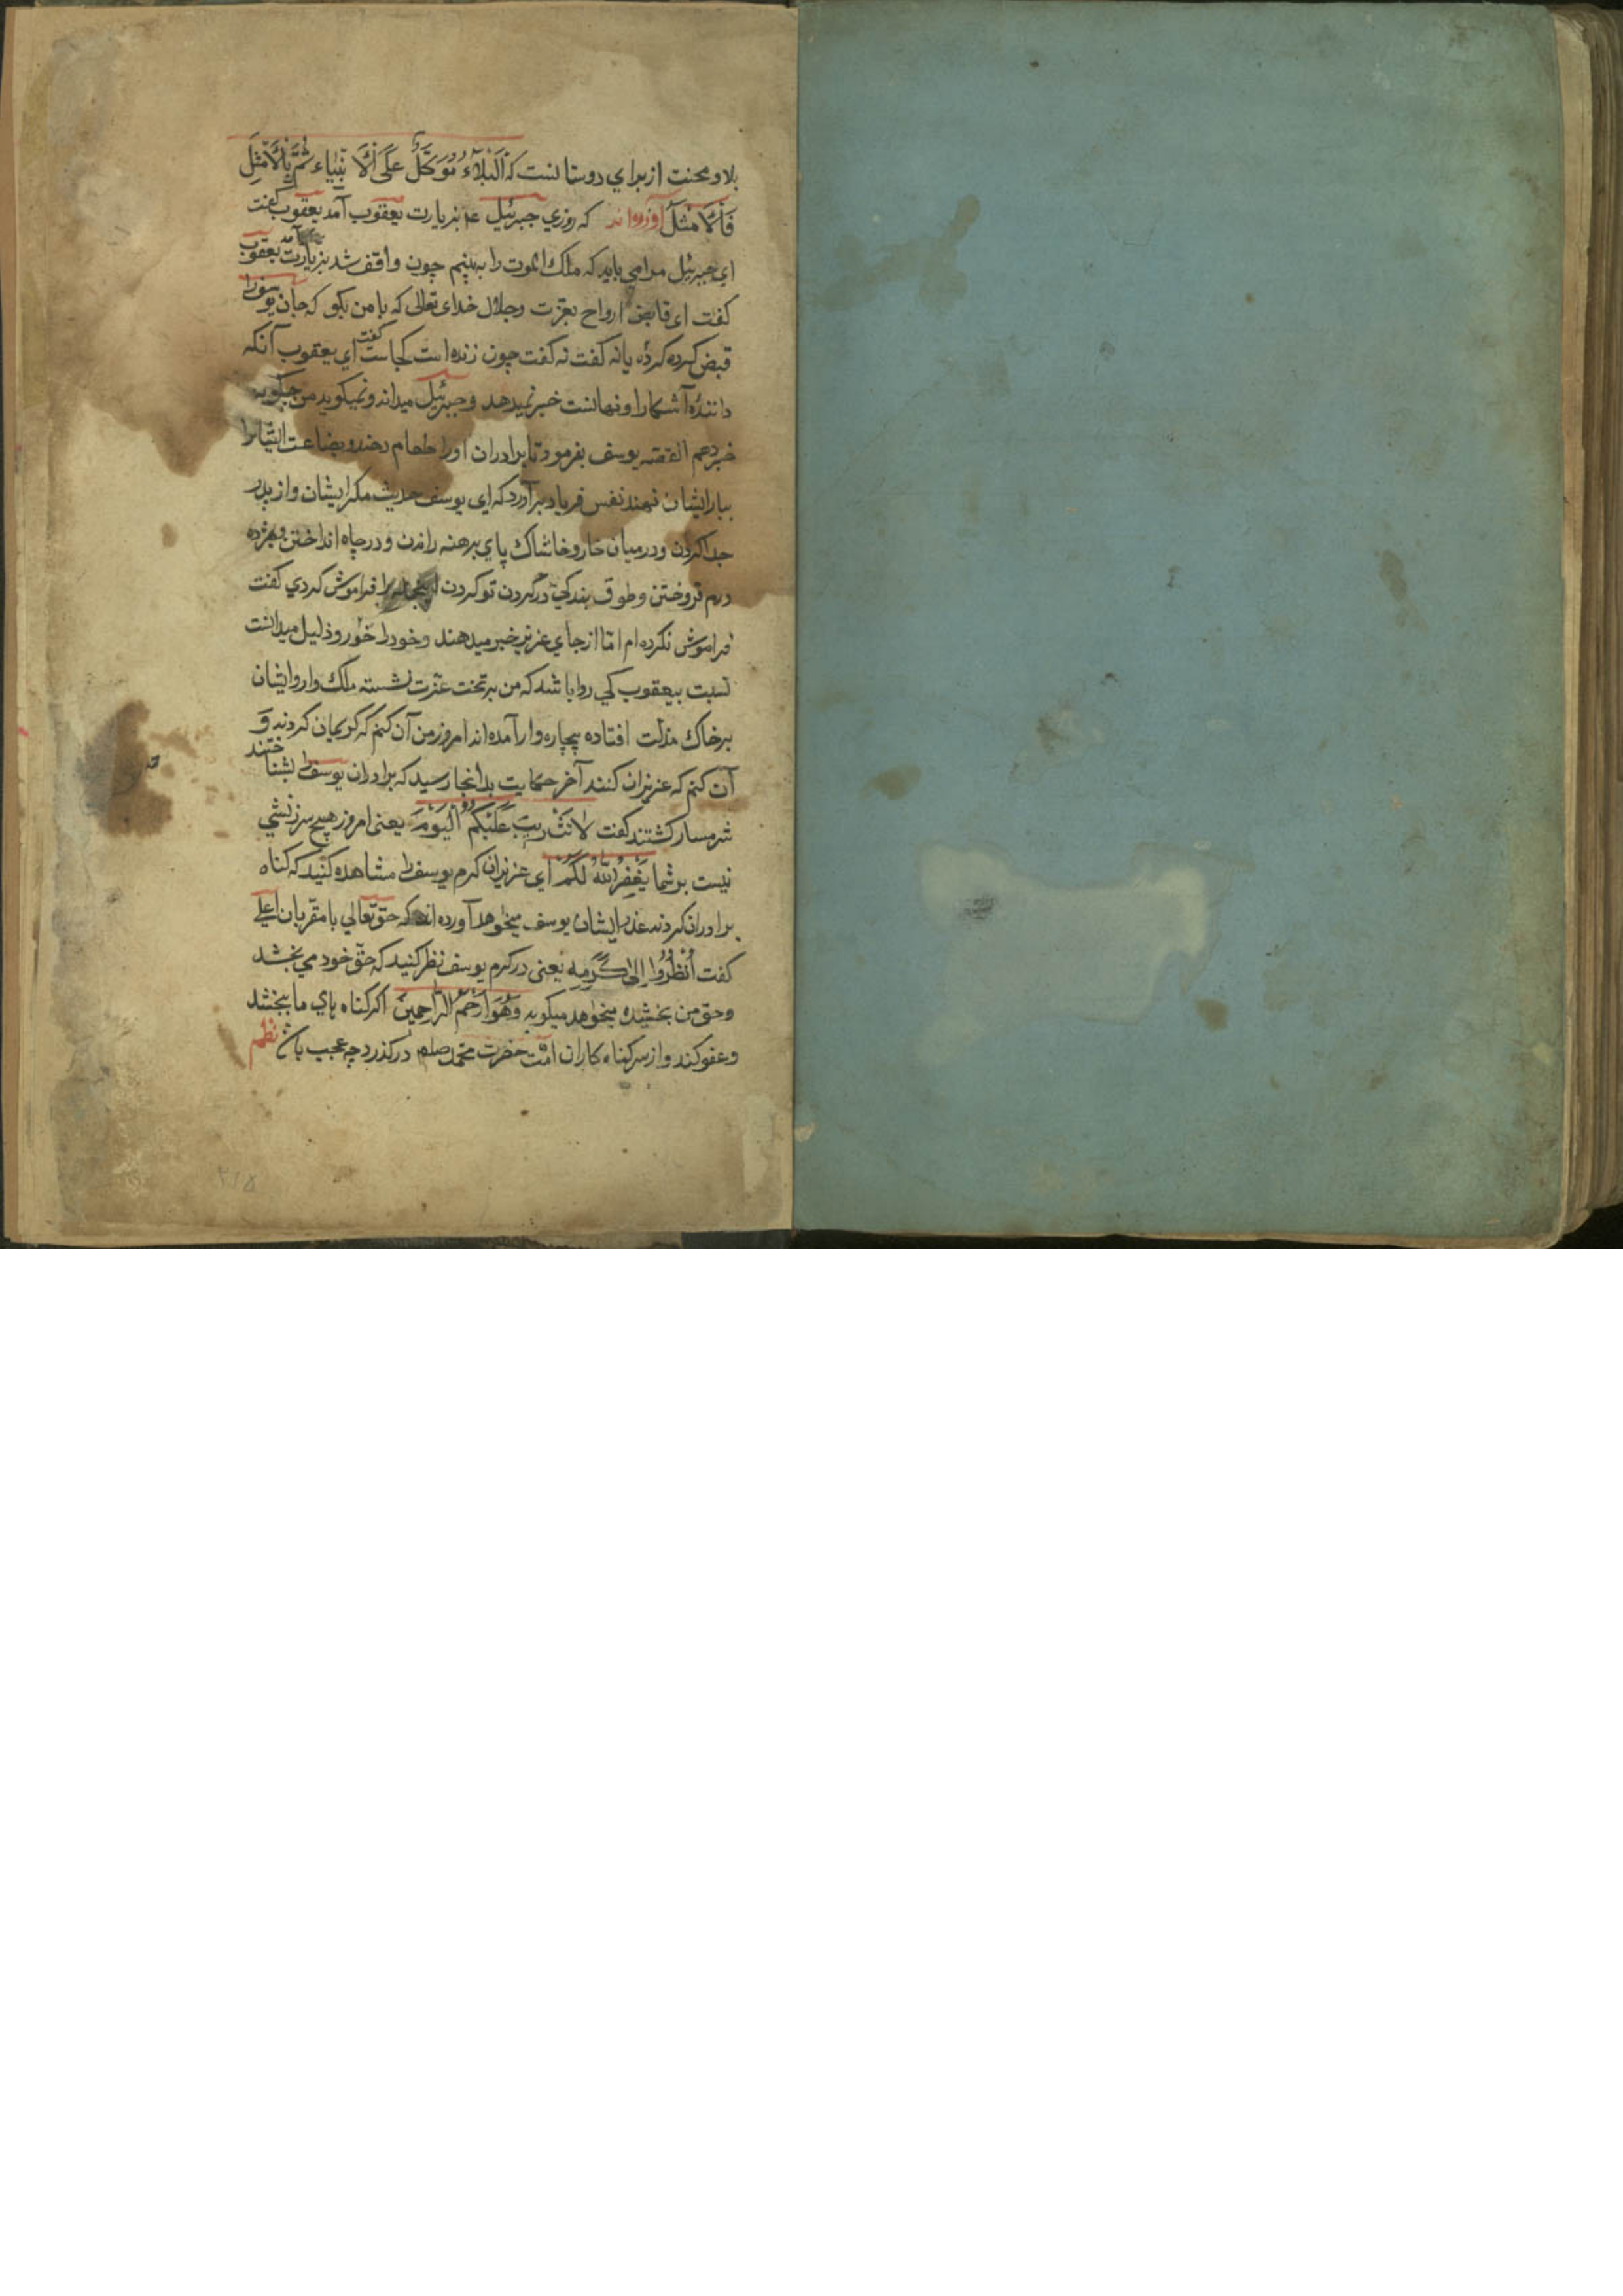 بلا و محنت از برای دوستانست که اَلْبَلَاءُ مُوَكَّلٌ عَلَى الْأَنْبِيَاء ثُمَّ بِالْأَمْثَلِ
فَالْأَمْثَل آورده‌اند که روزی جبرئیل عم بزیارت یعقوب آمد یعقوب گفت
ای جبرئیل مرا می باید که ملک الموت را به بینم چون واقف شد بزیارت یعقوب آمد
گفت ای قابض ارواح بعزت و جلال خدای تعالی که با من بگو که جان یوسف را
قبض کرده کردهٔ یا نه گفت نه گفت چون زنده است کجاست گفت ای یعقوب آنکه
دانندهٔ آشکارا و نهانست خبر نمیدهد و جبرئیل میداند و نمیگوید من چگونه
خبر دهم القصه یوسف بفرمود تا برادران اورا طعام دهند و بضاعت ایشانرا
ببار ایشان نهند نفس فریاد برآورد که ای یوسف حدیث مکر ایشان و از پدر
جدا کردن و در میان خار و خاشاک پای برهنه راندن و در چاه انداختن و بهژده
درم فروختن و طوق بندگی در گردن تو کردن فراموش کردی گفت
فراموش نکرده‌ام اما از جای عزیز خبر میدهند و خود را خوار و ذلیل میدانست
نسبت بیعقوب کی روا باشد که من بر تخت عزت نشسته ملک وار و ایشان
بر خاک مذلت افتاده بیچاره وار آمده‌اند امروز من آن کنم که کریمان کردند و
آن کنم که عزیزان کنند آخر حکایت بدانجا رسید که برادران یوسف را بشناختند
شرمسار گشتند گفت لَا تَثْرِيبَ عَلَيْكُمُ الْيَوْمَ یعنی امروز هیچ سرزنشی
نیست بر شما يَغْفِرُ اللّٰهُ لَكُمْ ای عزیزان کرم یوسف را مشاهده کنید که گناه
برادران کردند عذر ایشان یوسف میخواهد آورده‌اند که حق تعالی با مقربان اعلی
گفت اُنْظُرُوا اِلٰى كَرَمِهِ یعنی در کرم یوسف نظر کنید که حق خود می بخشد
و حق من بخشیده میخواهد میگوید وَهُوَ اَرْحَمُ الرَّاحِمِينَ اگر گناه های ما ببخشد
و عفو کند و از سر گناه کاران امت حضرت محمد صلعم درگذرد چه عجب باشد نظم
۲۱۸